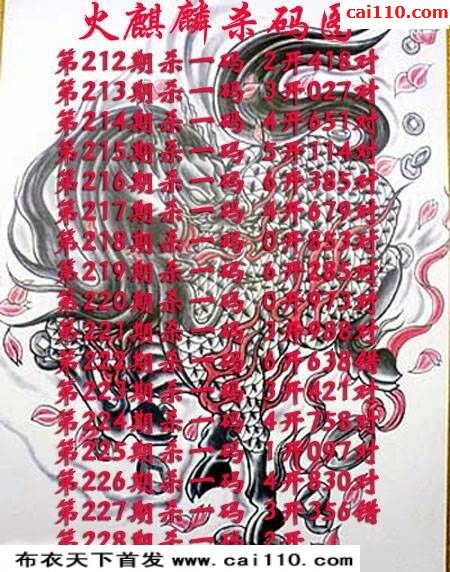 cai110.com
火麒麟杀码图
第212期杀一码 2开418对
第213期杀一码 3开027对
第214期杀一码 4开651对
第215期杀一码 5开114对
第216期杀一码 6开385对
第217期杀一码 4开679对
第218期杀一码 0开853对
第219期杀一码 6开285对
第220期杀一码 0开973对
第221期杀一码 3开988对
第222期杀一码 6开638错
第223期杀一码 3开421对
第224期杀一码 4开758对
第225期杀一码 1开097对
第226期杀一码 4开830对
第227期杀一码 3开356错
第228 2开
布衣天下首发 www.cai110.com